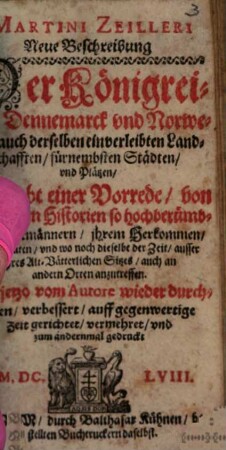 3
MARTINI ZEILLERI
Neue Beschreibung
Der Königrei-
Dennemarck vnd Norwe-
auch derselben einverleibten Land-
schafften / fürnembsten Städten /
vnd Plätzen /
einer Vorrede / von
Historien so hochberümb-
männern / jhrem Herkommen /
vnd wo noch dieselbe der Zeit / ausser
Alt-Vätterlichen Sitzes / auch an
andern Orten anzutreffen.
jetzo vom Autore wieder durch-
en / verbessert / auff gegenwertige
Zeit gerichtet / vermehret / vnd
zum andernmal gedruckt
M. DC. LVIII.
M / durch Balthasar Kühnen / b
stellten Buchtruckern daselbst.